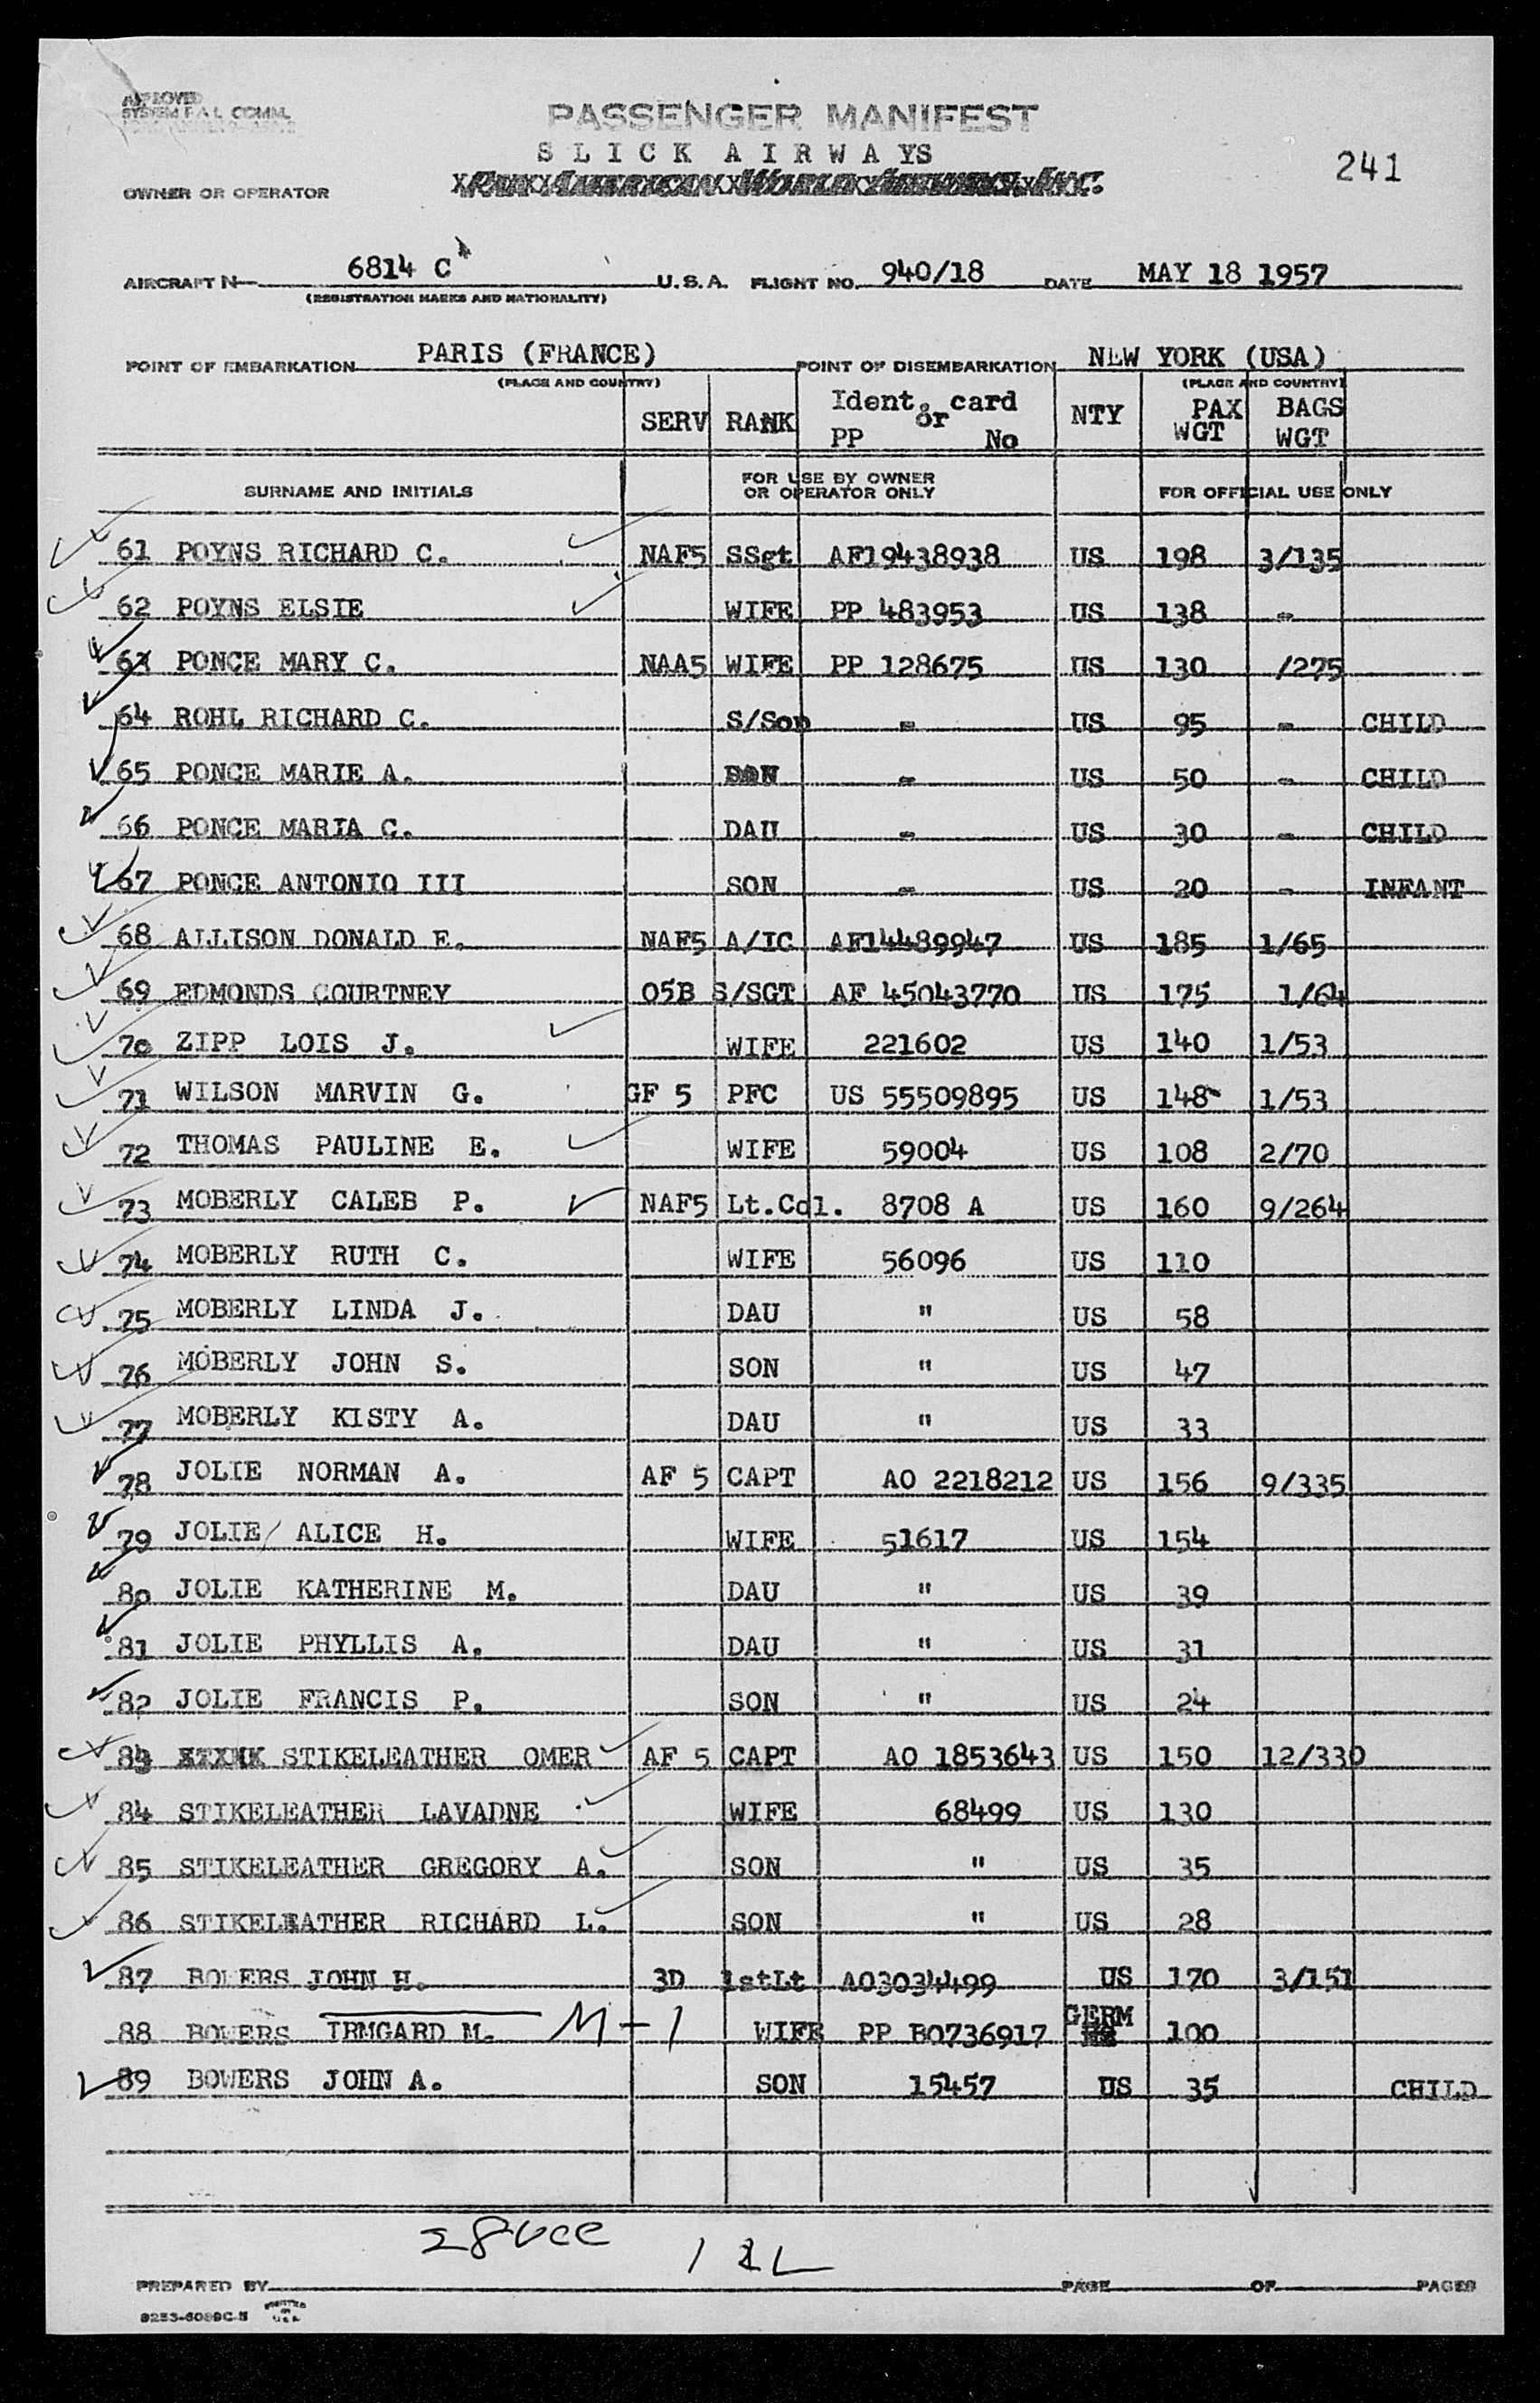 APPROVED
SYSTEM F.A.L. COMM.
PASSENGER MANIFEST
SLICK AIRWAYS
241
OWNER OR OPERATOR
AIRCRAFT N 6814 C U.S.A. FLIGHT NO. 940/18 DATE MAY 18 1957
(REGISTRATION MARKS AND NATIONALITY)
POINT OF EMBARKATION PARIS (FRANCE) POINT OF DISEMBARKATION NEW YORK (USA)
(PLACE AND COUNTRY) (PLACE AND COUNTRY)
SERV RANK Ident. card or PP No NTY PAX WGT BAGS WGT
SURNAME AND INITIALS FOR USE BY OWNER OR OPERATOR ONLY FOR OFFICIAL USE ONLY
61 POYNS RICHARD C. NAF5 SSgt AF19438938 US 198 3/135
62 POYNS ELSIE WIFE PP 483953 US 138 -
63 PONCE MARY C. NAA5 WIFE PP 128675 US 130 /275
64 ROHL RICHARD C. S/Son - US 95 - CHILD
65 PONCE MARIE A. - US 50 - CHILD
66 PONCE MARIA C. DAU - US 30 - CHILD
67 PONCE ANTONIO III SON - US 20 - INFANT
68 ALLISON DONALD E. NAF5 A/IC AF14489947 US 185 1/65
69 EDMONDS COURTNEY 05B S/SGT AF 45043770 US 175 1/64
70 ZIPP LOIS J. WIFE 221602 US 140 1/53
71 WILSON MARVIN G. GF 5 PFC US 55509895 US 148 1/53
72 THOMAS PAULINE E. WIFE 59004 US 108 2/70
73 MOBERLY CALEB P. NAF5 Lt.Col. 8708 A US 160 9/264
74 MOBERLY RUTH C. WIFE 56096 US 110
75 MOBERLY LINDA J. DAU " US 58
76 MOBERLY JOHN S. SON " US 47
77 MOBERLY KISTY A. DAU " US 33
78 JOLIE NORMAN A. AF 5 CAPT AO 2218212 US 156 9/335
79 JOLIE/ ALICE H. WIFE 51617 US 154
80 JOLIE KATHERINE M. DAU " US 39
81 JOLIE PHYLLIS A. DAU " US 31
82 JOLIE FRANCIS P. SON " US 24
83 STIKELEATHER OMER AF 5 CAPT AO 1853643 US 150 12/330
84 STIKELEATHER LAVADNE WIFE 68499 US 130
85 STIKELEATHER GREGORY A. SON " US 35
86 STIKELEATHER RICHARD L. SON " US 28
87 BOWERS JOHN H. 3D 1stLt AO3034499 US 170 3/151
88 BOWERS IRMGARD M. M-1 WIFE PP B0736917 GERM 100
89 BOWERS JOHN A. SON 15457 US 35 CHILD
PREPARED BY PAGE OF PAGES
PRINTED IN U.S.A.